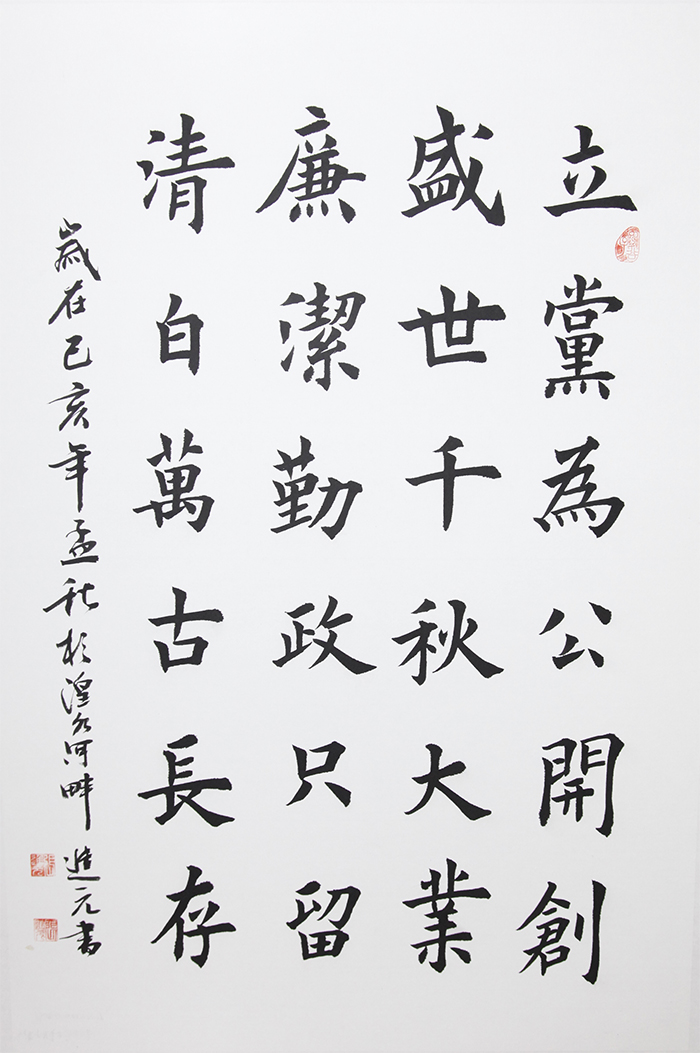 立黨為公開創
盛世千秋大業
廉潔勤政只留
清白萬古長存
歲在己亥年孟秋於湟水河畔 進元書